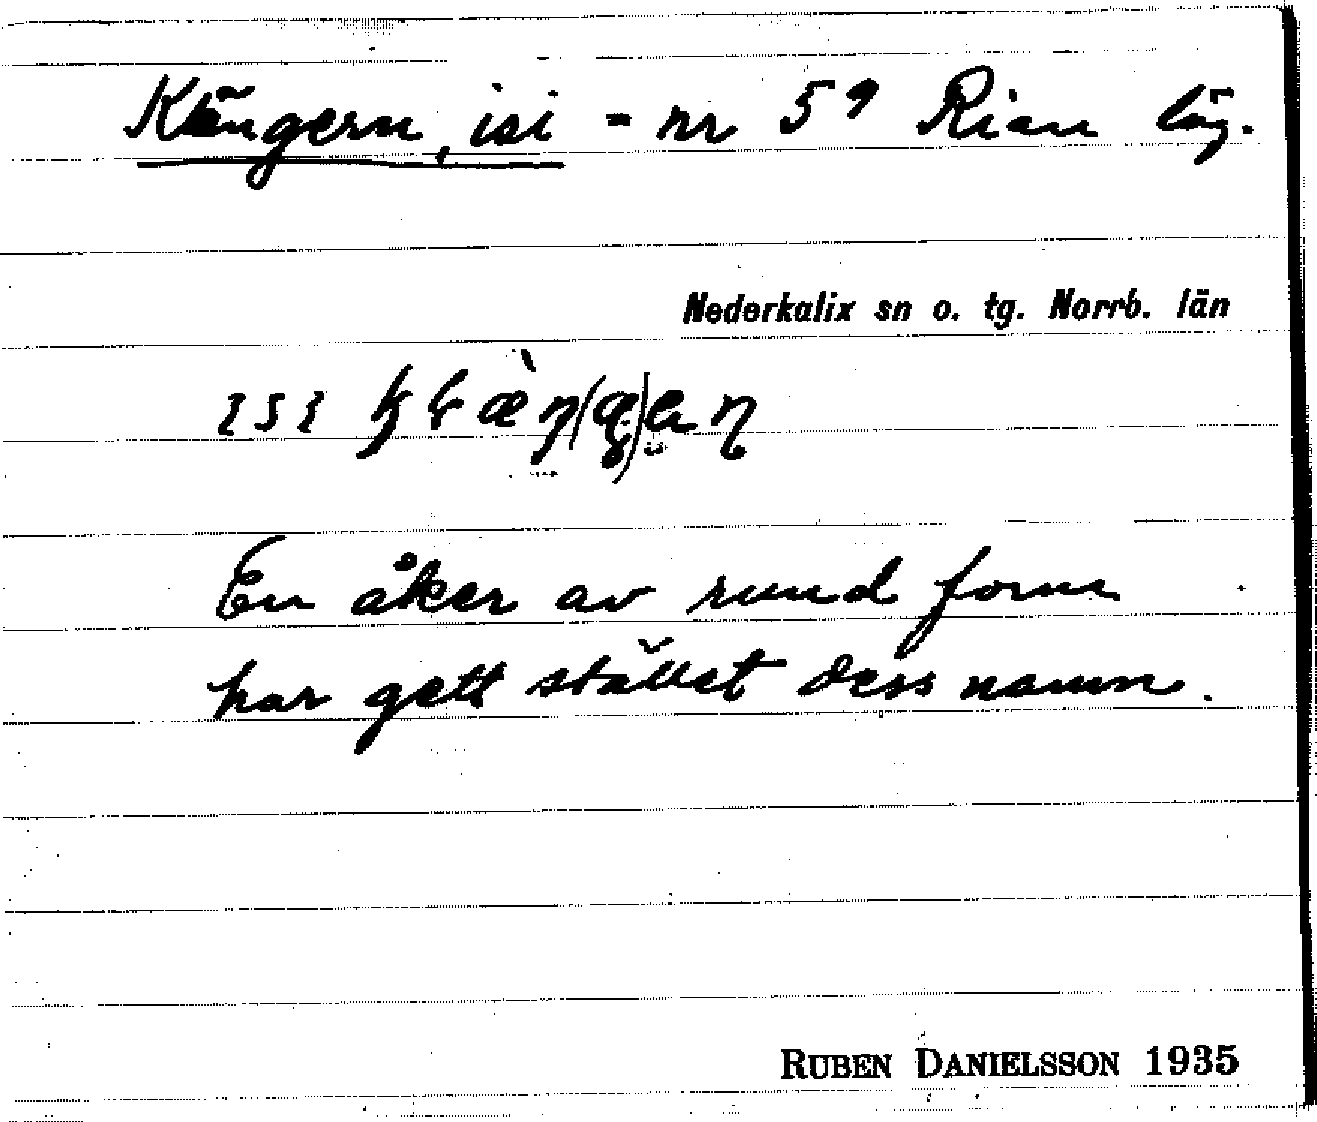 Kängern, isi - nr 59 Rian läg.
Nederkalix sn o. tg. Norrb. län
ısı
En åker av rund form
har gett stället dess namn.
RUBEN DANIELSSON 1935